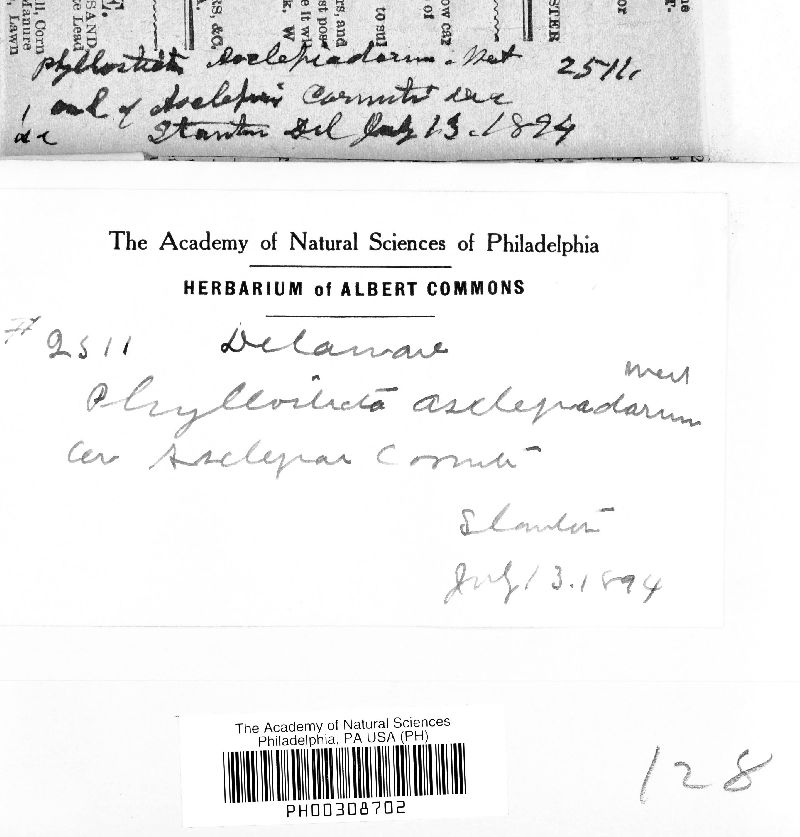 Phyllosticta Asclepiadarum. West 2511.
and of Asclepias Cornuti Dec
Stanton Del July 13. 1894
The Academy of Natural Sciences of Philadelphia
HERBARIUM of ALBERT COMMONS
# 2511 Delaware
West
Phyllosticta asclepiadarum
on Asclepias Cornuti
Stanton
July 13. 1894
The Academy of Natural Sciences
Philadelphia, PA USA (PH)
PH00308702
128